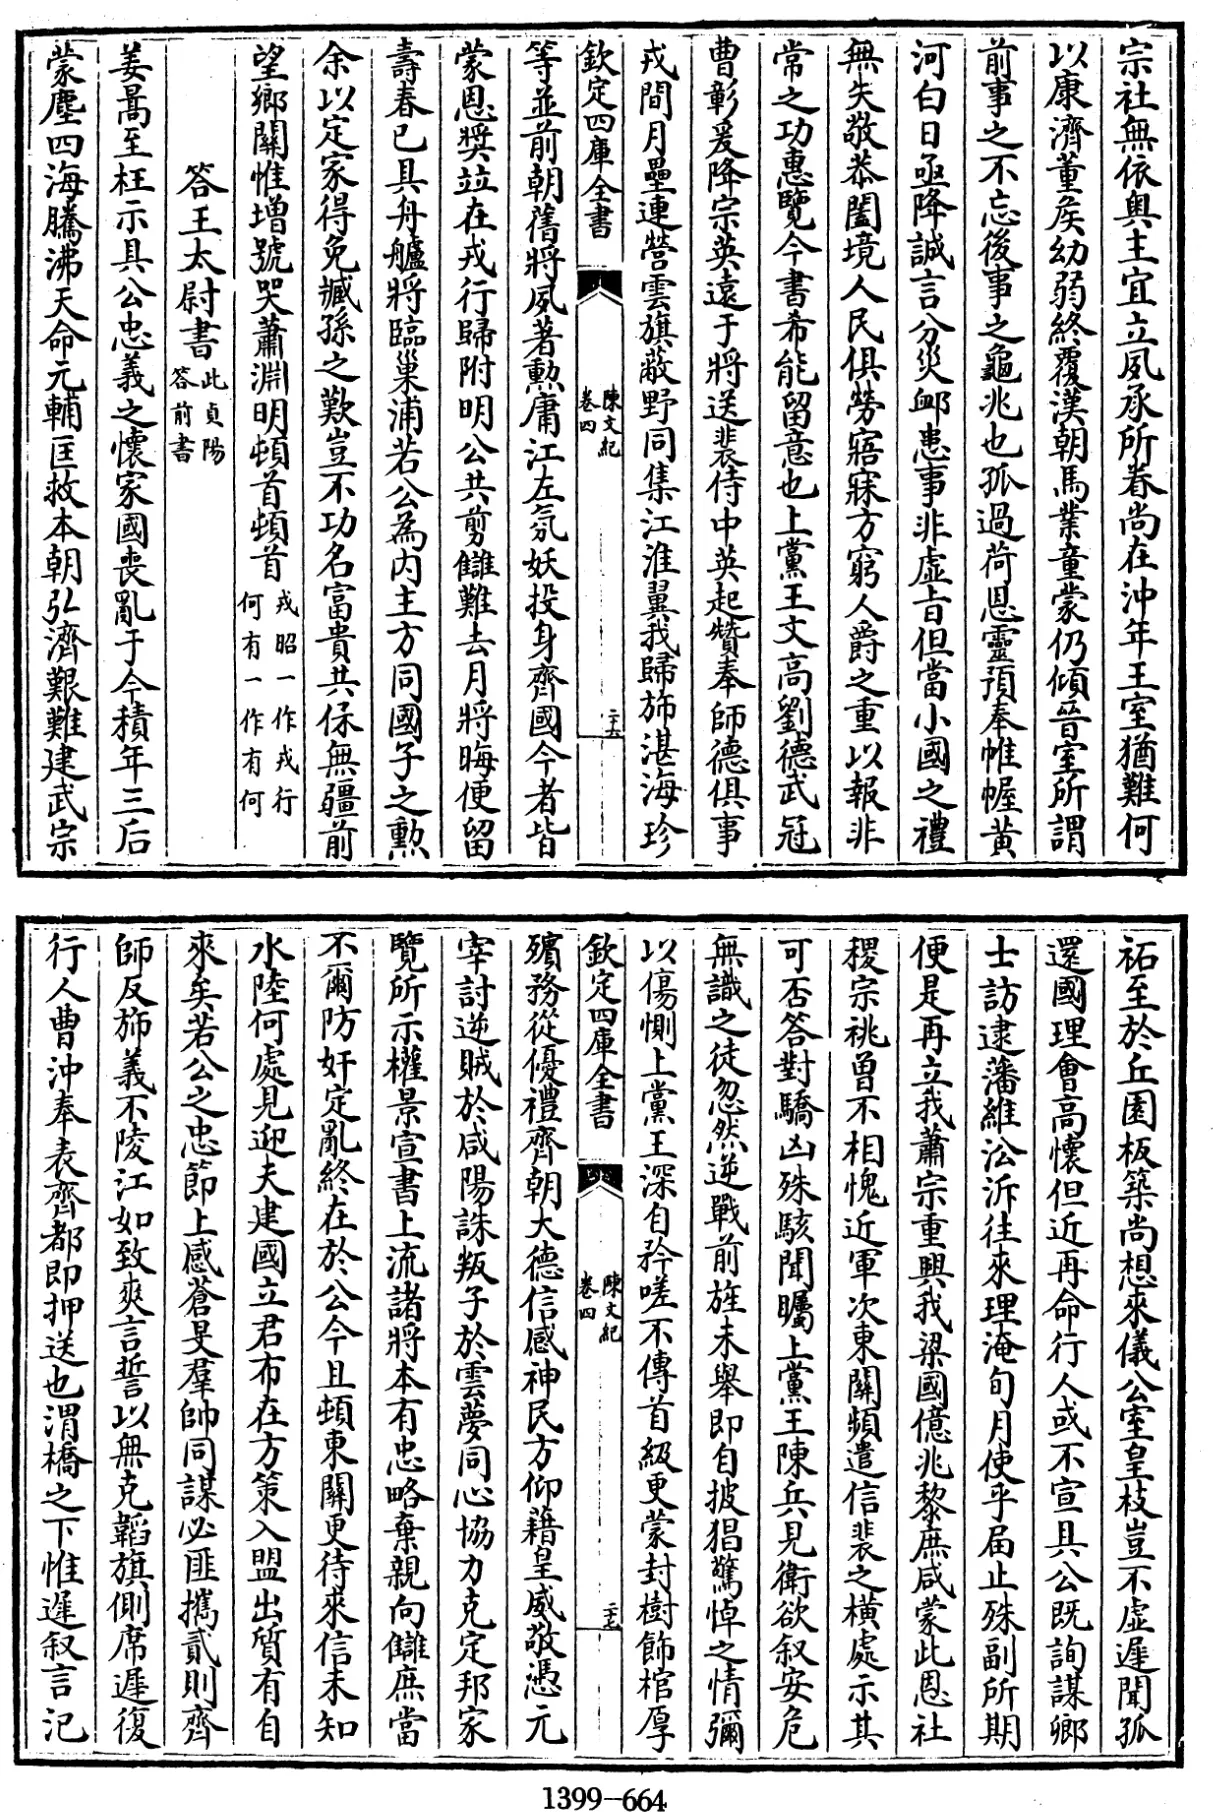 宗社無依奥主宜立夙承所眷尚在沖年王室猶難何
以康濟董矦幼弱終覆漢朝馬業童蒙仍傾晉室所謂
前事之不忘後事之龜兆也孤過荷恩靈預奉帷幄黄
河白日亟降誠言分災卹患事非虚旨但當小國之禮
無失敬恭闔境人民俱勞寤寐方窮人爵之重以報非
常之功惠覽今書希能留意也上黨王文高劉德武冠
曹彰爰降宗英遠于將送裴侍中英起贊奉師德俱事
戎間月壘連營雲旗蔽野同集江淮翼我歸斾湛海珍
欽定四庫全書
陳文紀
卷四
二十六
等並前朝舊將夙著勲庸江左氛妖投身齊國今者皆
蒙恩奬竝在戎行歸附明公共剪讎難去月將晦便留
壽春已具舟艫將臨巢浦若公為内主方同國子之勲
余以定家得免臧孫之歎豈不功名富貴共保無疆前
望鄉關惟增號哭蕭淵明頓首頓首
戎昭一作戎行
何有一作有何
答王太尉書
此貞陽
答前書
姜暠至枉示具公忠義之懷家國喪亂于今積年三后
蒙塵四海騰沸天命元輔匡救本朝弘濟艱難建武宗
祏至於丘園板築尚想來儀公室皇枝豈不虚遲聞孤
還國理會高懷但近再命行人或不宣具公既詢謀卿
士訪逮藩維沿泝往來理淹旬月使乎届止殊副所期
便是再立我蕭宗重興我梁國億兆黎庶咸蒙此恩社
稷宗祧曽不相愧近軍次東關頻遣信裴之横處示其
可否答對驕凶殊駭聞矚上黨王陳兵見衛欲叙安危
無識之徒忽然逆戰前旌未舉即自披猖驚悼之情彌
以傷惻上黨王深自矜嗟不傳首級更蒙封樹飾棺厚
欽定四庫全書
陳文紀
卷四
二十七
殯務從優禮齊朝大德信感神民方仰藉皇威敬憑元
宰討逆賊於咸陽誅叛子於雲夢同心協力克定邦家
覽所示權景宣書上流諸將本有忠略棄親向讎庶當
不爾防奸定亂終在於公今且頓東關更待來信未知
水陸何處見迎夫建國立君布在方策入盟出質有自
來矣若公之忠節上感蒼旻羣帥同謀必匪攜貳則齊
師反斾義不陵江如致爽言誓以無克韜旗側席遲復
行人曹沖奉表齊都即押送也渭橋之下惟遲叙言汜
1399-664